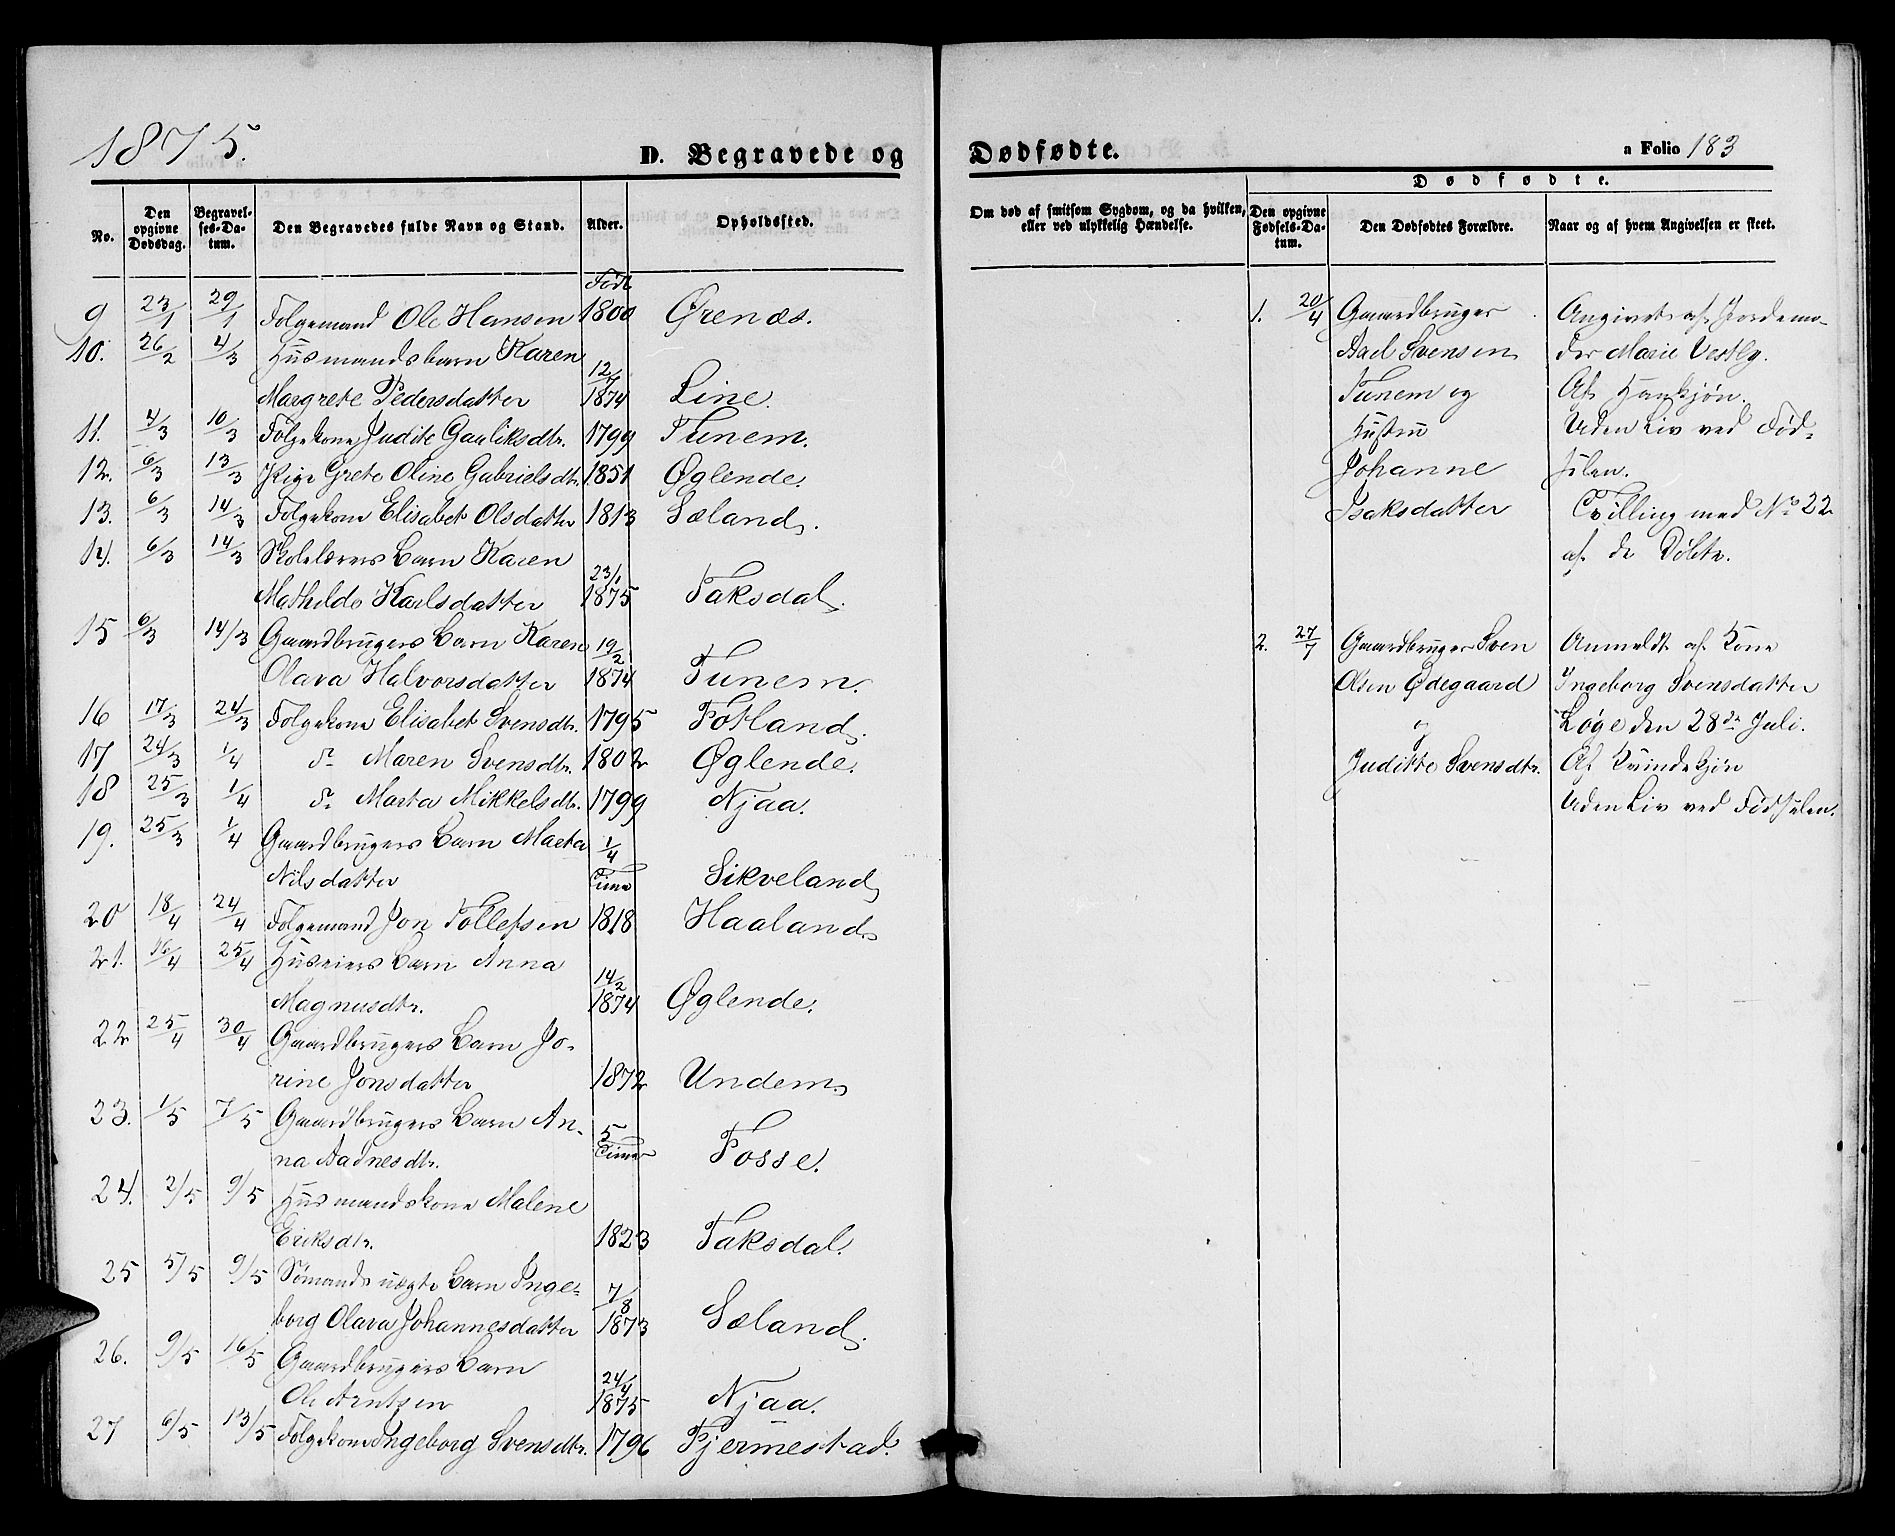 1875.
D. Begravede og
No.
Den opgivne Dødsdag.
Begravelses-Datum.
Den Begravedes fulde Navn og Stand.
Alder.
Opholdssted.
Født
9 23/1 29/1 Folgemand Ole Hansen 1800 Ørenæs.
10. 26/2 4/3 Husmandsbarn Karen
Margrete Pedersdatter 12/7 1874 Line.
11. 4/3 10/3 Folgekone Judite Gauliksdtr. 1799 Tunem.
12. 6/3 13/3 Pige Grete Oline Gabrielsdtr. 1851 Øglende.
13. 6/3 14/3 Folgekone Elisabet Olsdatter 1813 Sæland.
14. 6/3 14/3 Skolelærers Barn Karen
Mathilde Karlsdatter 23/1 1875 Taksdal.
15 6/3 14/3 Gaardbrugers Barn Karen
Olava Halvorsdatter 19/2 1874 Tunem.
16 17/3 24/3 Folgekone Elisabet Svensdtr. 1795 Fotland.
17 24/3 1/4 do Maren Svensdtr. 1802 Øglende.
18 25/3 1/4 do Marta Mikkelsdtr. 1799 Njaa.
19. 25/3 1/4 Gaardbrugers Barn Marta
Nilsdatter 1/4 Time Sikveland
20 18/4 24/4 Folgemand Jon Tollefsen 1818 Haaland
21. 16/4 25/4 Huseiers Barn Anna
Magnusdtr. 14/2 1874 Øglende.
22 25/4 30/4 Gaardbrugers Barn Jo-
rine Jonsdatter 1872 Undem
23. 1/5 7/5 Gaardbrugers Barn An-
na Aadnesdtr. 5 Timer Fosse.
24. 2/5 9/5 Husmandskone Malene
Eriksdtr. 1823 Taksdal.
25 5/5 9/5 Sømands uægte Barn Inge-
borg Olava Johannesdatter 7/8 1873 Sæland.
26. 9/5 16/5 Gaardbrugers Barn
Ole Arntsen 24/4 1875 Njaa.
27 6/5 13/5 Folgekone Ingeborg Svensdtr. 1796 Fjermestad.
Dødfødte.
a Folio 183
Dødfødte.
Om død af smitsom Sygdom, og da hvilken, eller ved ulykkelig Hændelse.
Den opgivne Fødsels-Datum.
Den Dødfødtes Forældre.
Naar og af hvem Angivelsen er skeet.
1. 20/4 Gaardbruger Angivet af Jordemo-
Axel Svensen der Marie Vestly.
Tunem og Af Hankjøn.
Hustru Uden Liv ved Fød-
Johanne selen.
Isaksdatter Tvilling med No 22
af de Døbte.
2. 27/7 Gaardbruger Sven Anmeldt af Kone
Olsen Ødegaard Ingeborg Svensdatter
og Løge den 28de Juli.
Juditte Svensdtr. Af Kvindekjøn
Uden Liv ved Fødselen.